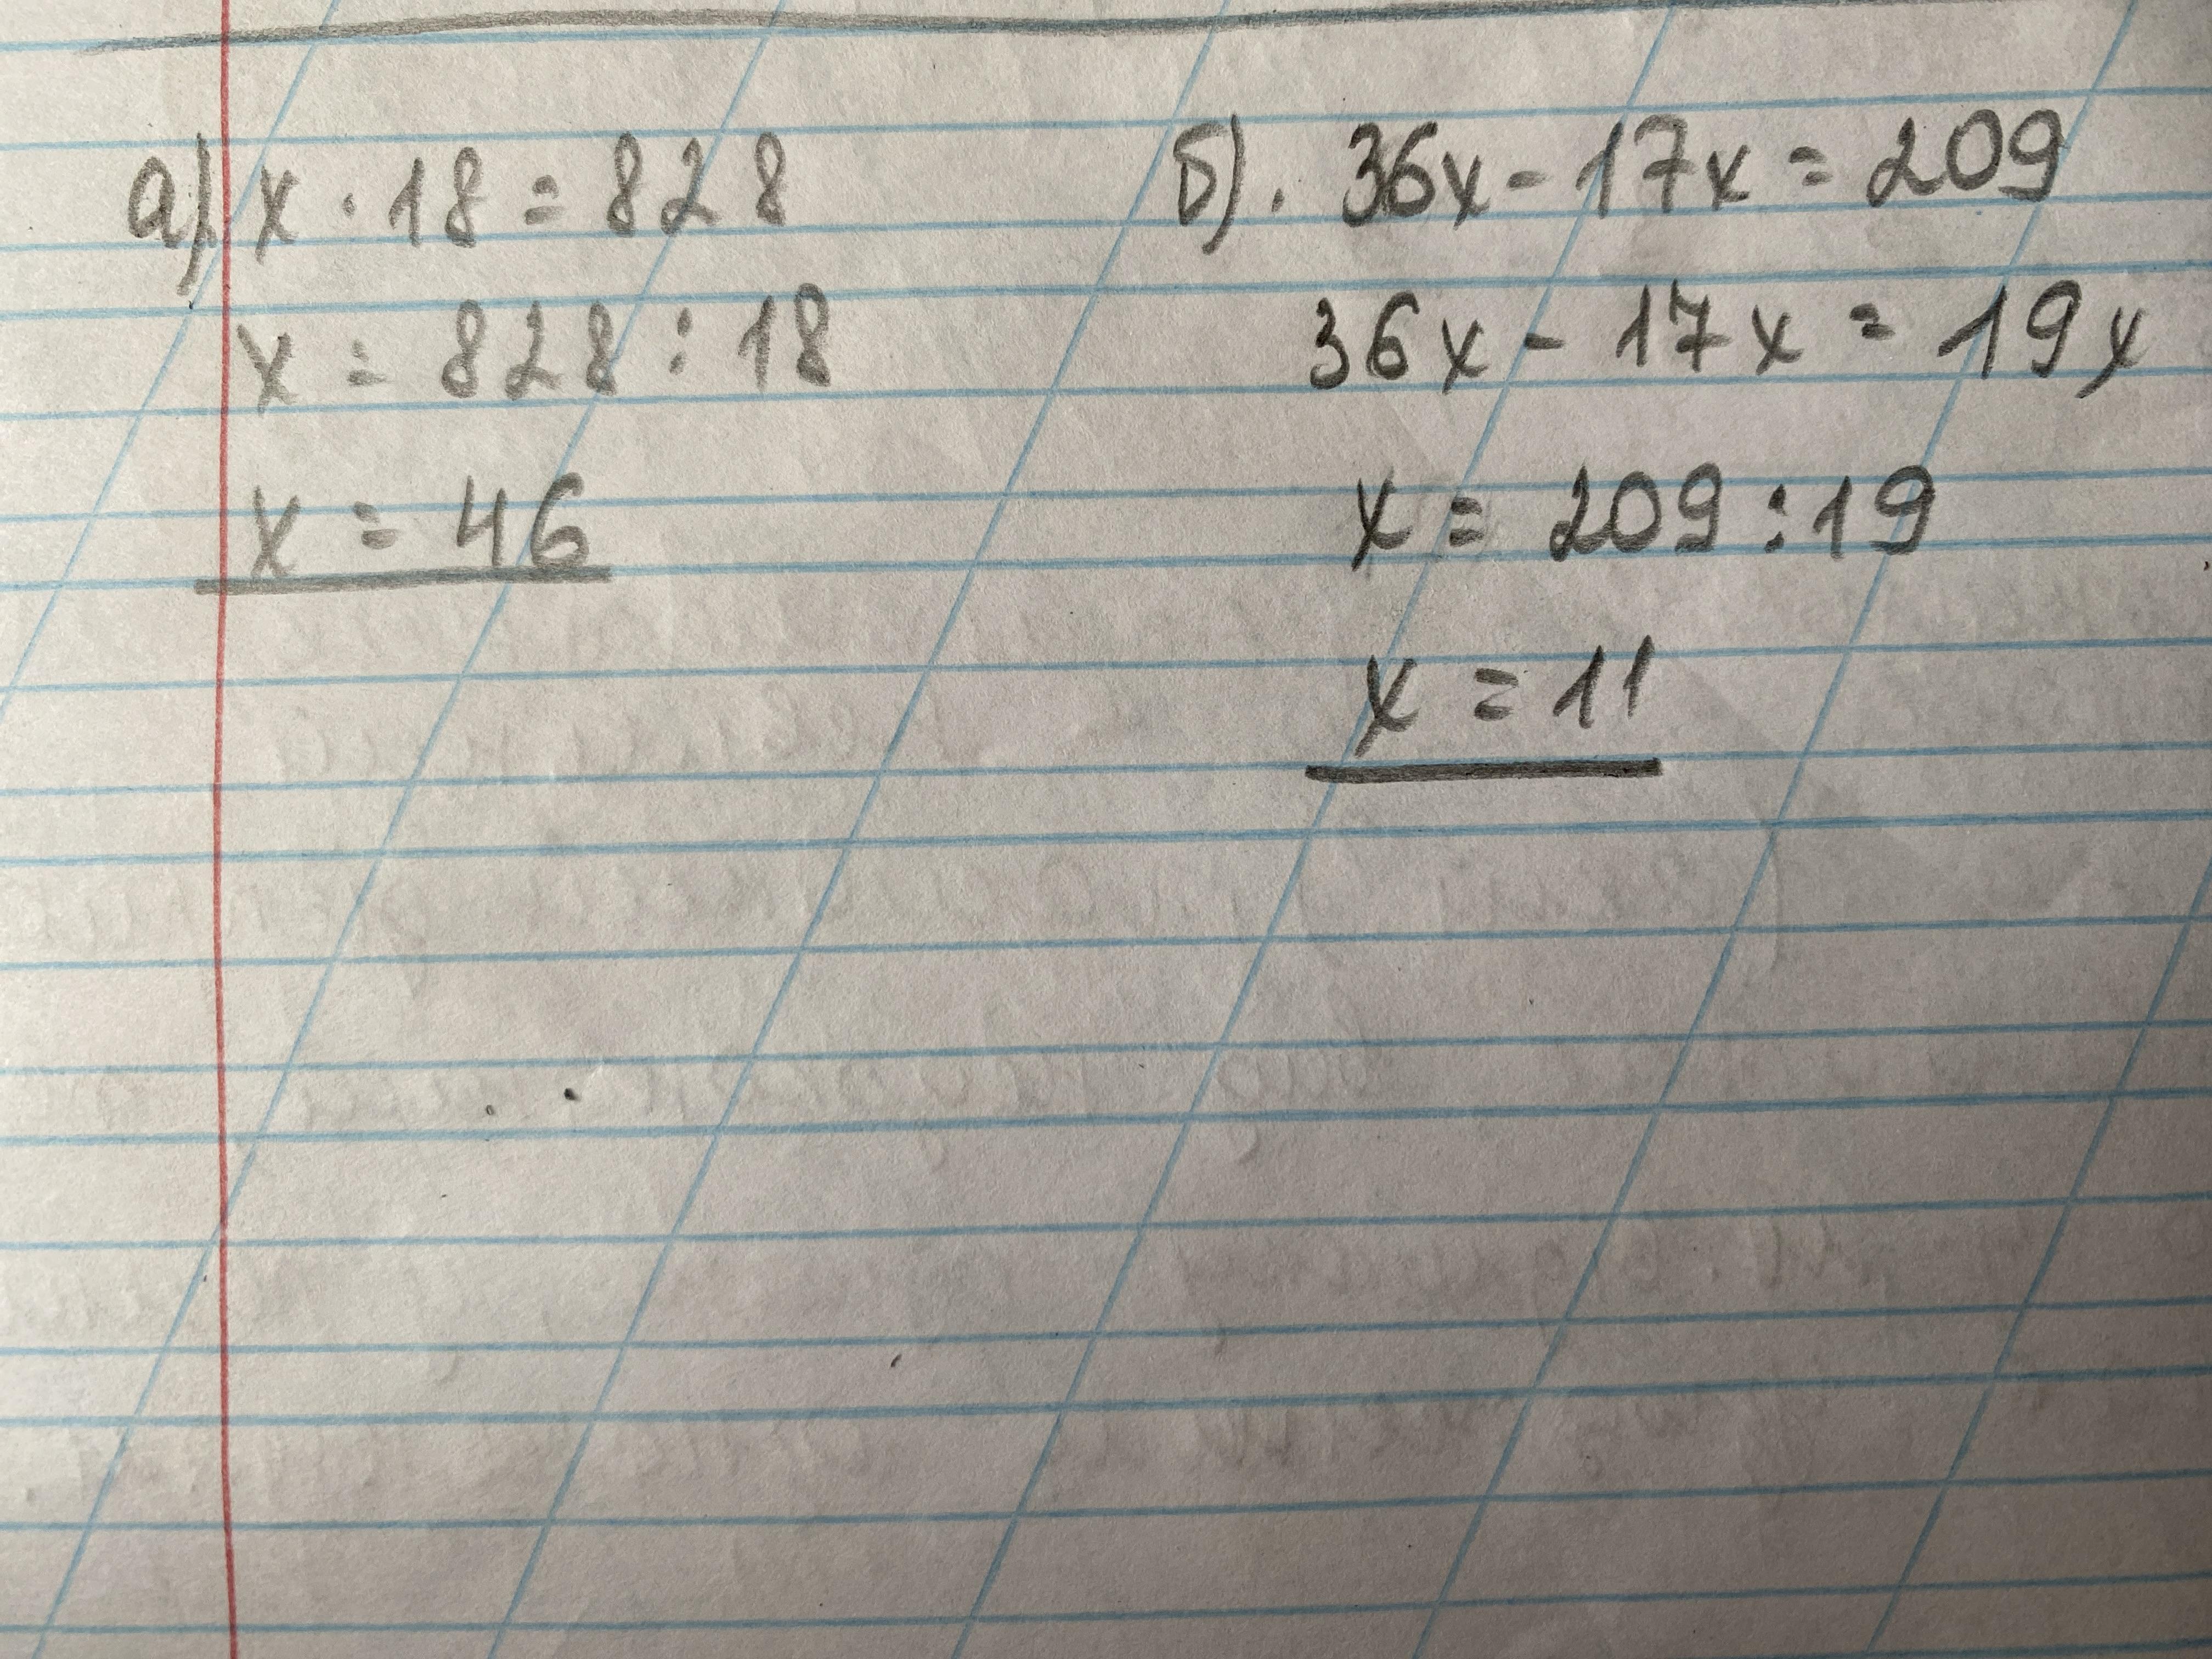 а). x · 18 = 828
x = 828 : 18
x = 46
б). 36x - 17x = 209
36x - 17x = 19x
x = 209 : 19
x = 11